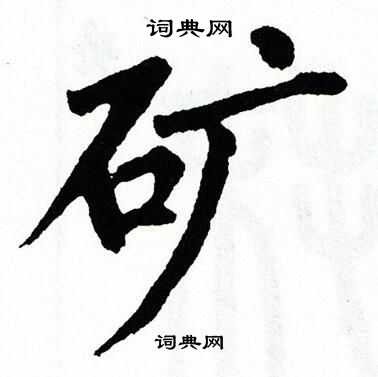 词典网
矿
词典网